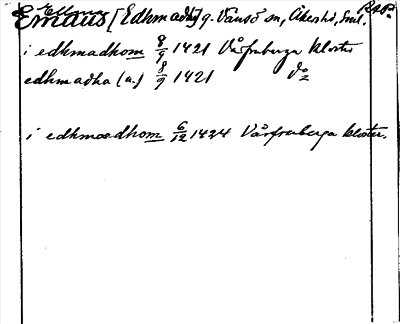 Emaus [Edhmadha] g. Vansö sn, Åkersh, Sml.
i edhmadhom 8/9 1421 Vårfruberga kloster
edhmadha (a.) 8/9 1421 do
i edhmaedhom 6/12 1424 Vårfruberga kloster.